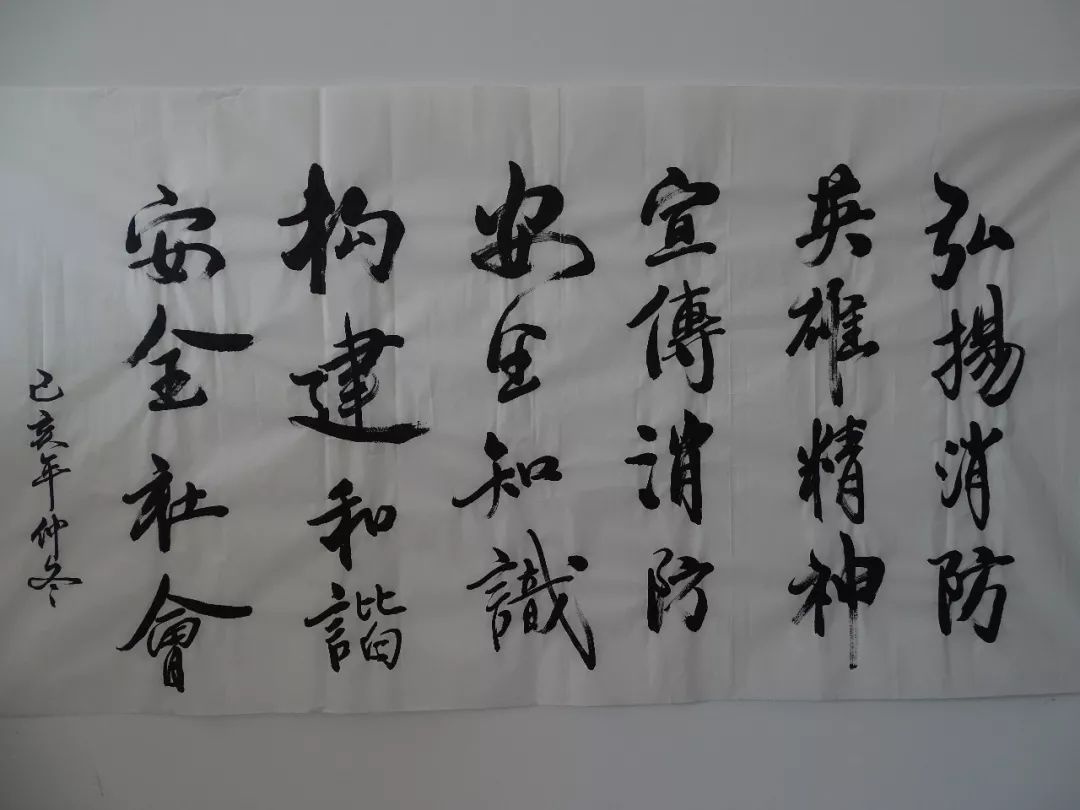 弘揚消防
英雄精神
宣傳消防
安全知識
构建和諧
安全社會
己亥年仲冬